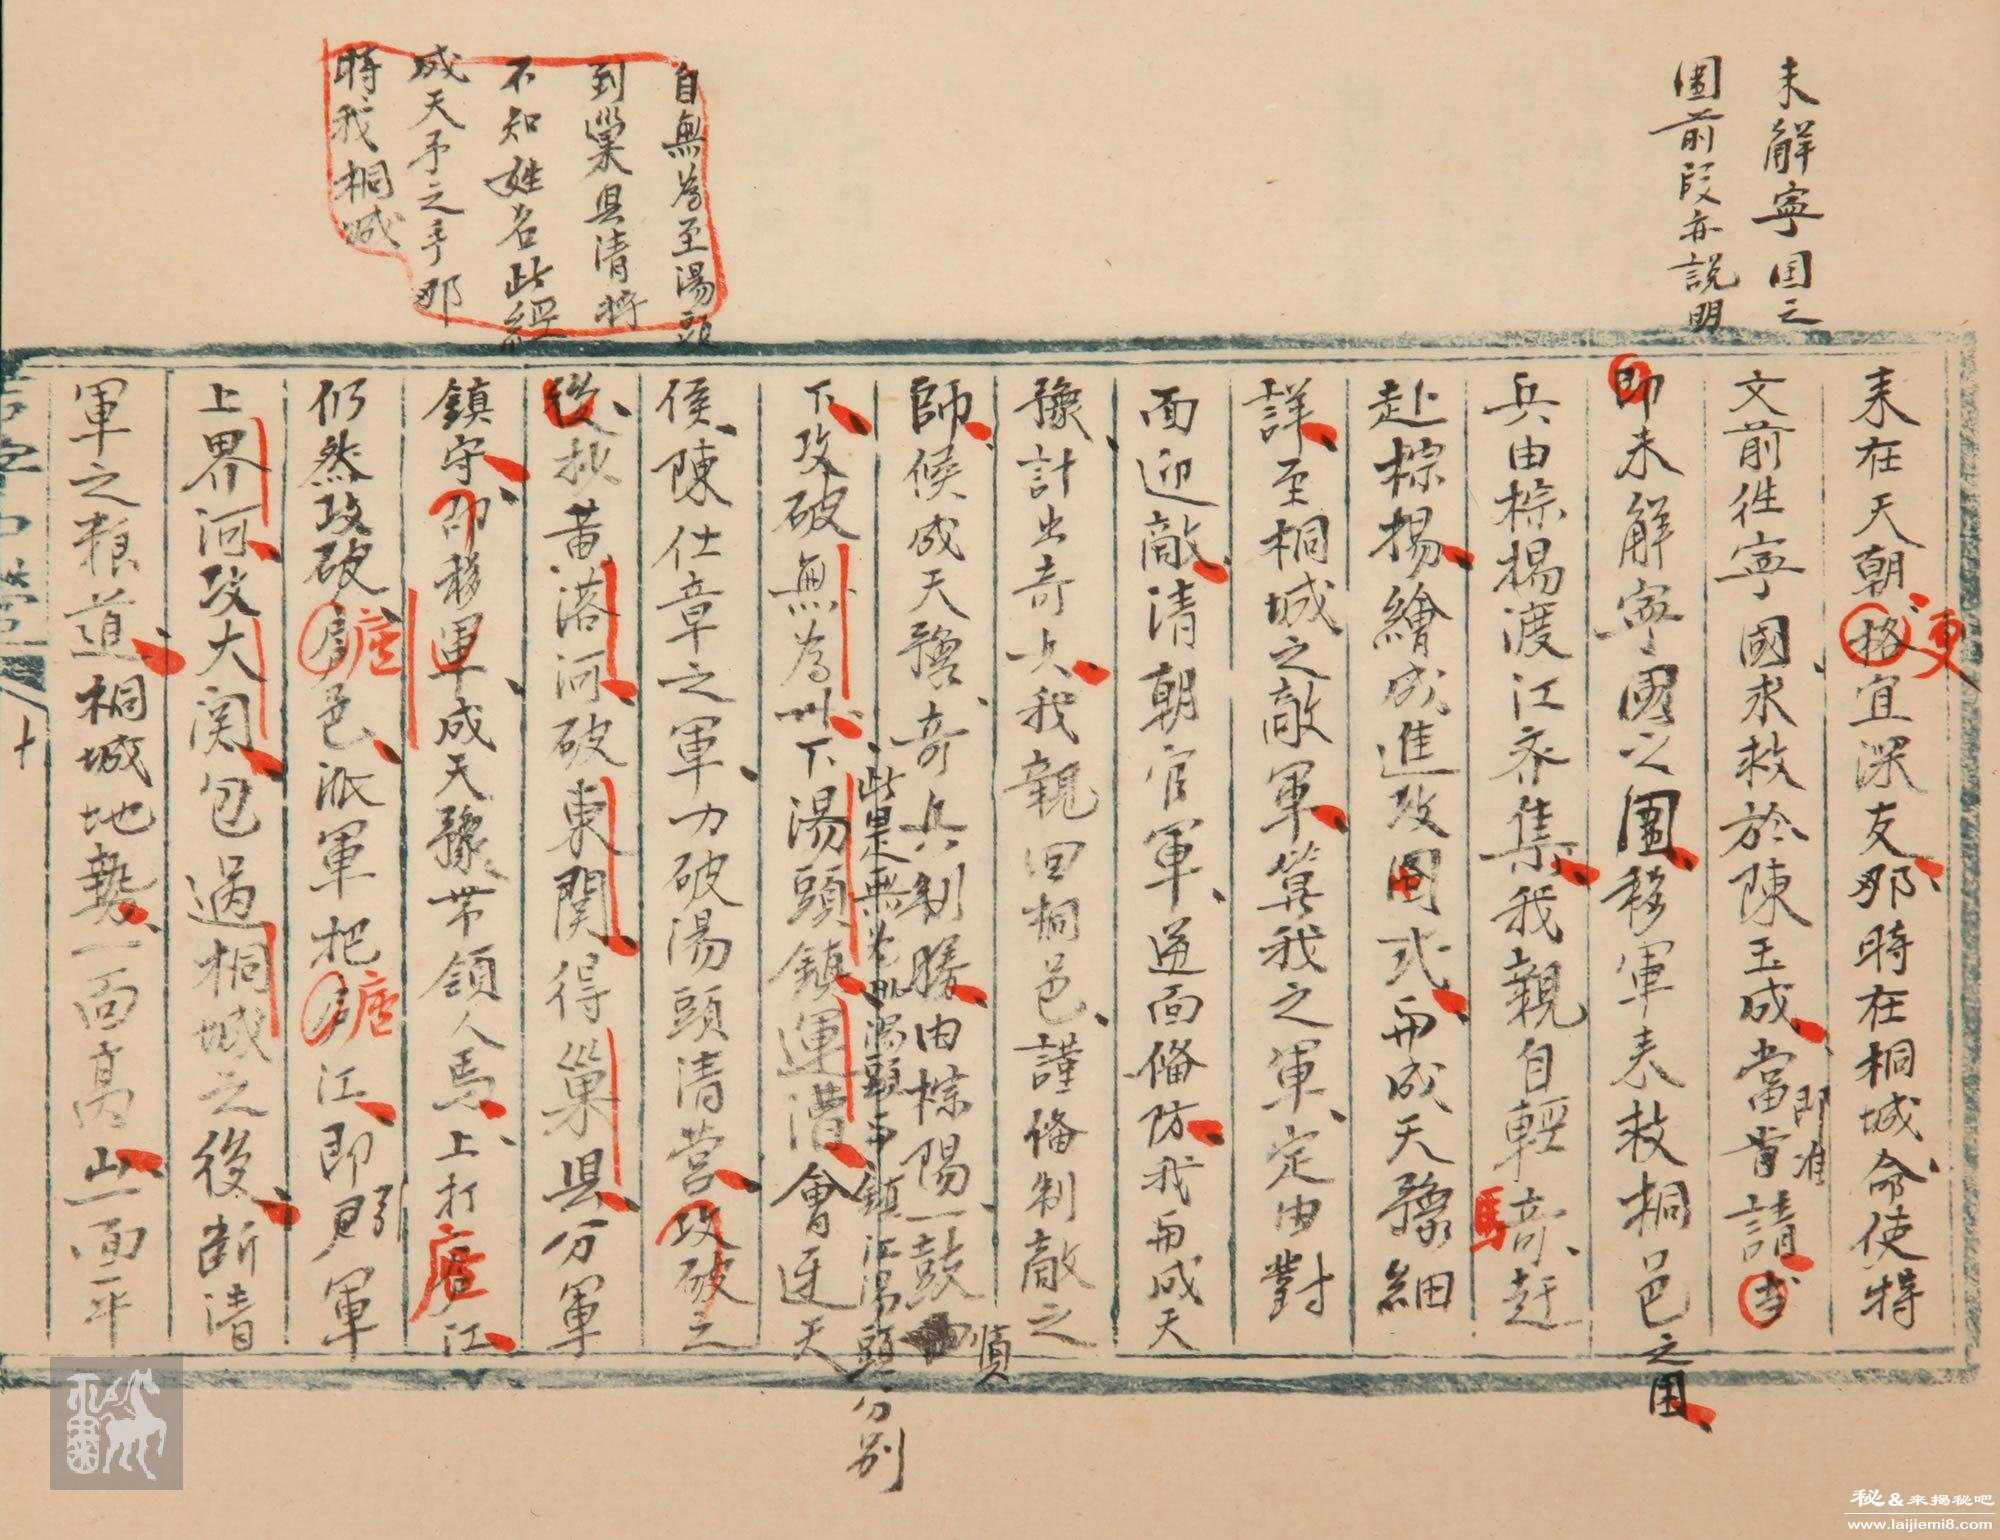 未解寧国之
圍前段亦説明
自無為至湯頭
到巢县清將
不知姓名此經
成天予之手那
時我桐城
來在天朝格宜深友那時在桐城命使特
更
文前往寧國求救於陳玉成當肯請
即准
即未解寧國之圍移軍來救桐邑之困
兵由棕楊渡江齐集我親自輕騎赶
赴棕楊繪成進攻圖式與成天豫細
詳至桐城之敵軍算我之軍定由對
面迎敵清朝官軍並面俻防我與成天
豫計出奇兵我親回桐邑謹俻制敵之
師候成天豫奇兵制勝由棕陽一鼓
順
此是無為湯頭
鎮江湯頭分別
下攻破無為州下湯頭鎮運漕會迓天
侯陳仕章之軍力破湯頭清營攻破之
後抄黃落河破東関得巢县分軍
鎮守即移軍成天豫帶領人馬上打庐江
仍然攻破庐邑派軍把庐江即引軍
上界河攻大関包过桐城之後断清
軍之粮道桐城地勢一面高山一面平
十
秘&来揭秘吧
www.laijiemi8.com